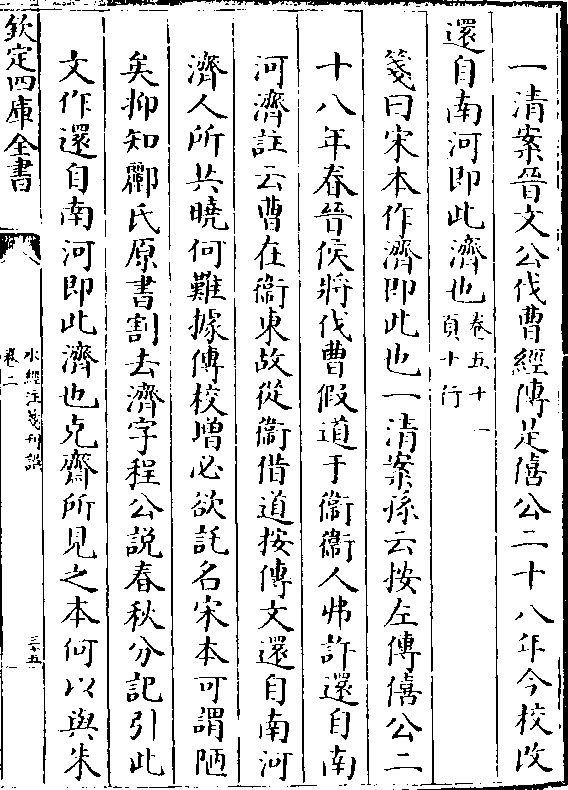 一清案晉文公伐曹經傳是僖公二十八年今校改
還自南河即此濟也卷五十一頁十行
箋曰宋本作濟即此也一清案孫云按左傳僖公二
十八年春晉侯將伐曹假道于衞衞人弗許還自南
河濟註云曹在衞東故從衞借道按傳文還自南河
濟人所共曉何難據傳校增必欲託名宋本可謂陋
矣抑知酈氏原書割去濟字程公説春秋分記引此
文作還自南河即此濟也克齋所見之本何以與朱
欽定四庫全書
水經注箋刊誤
卷二
三十五